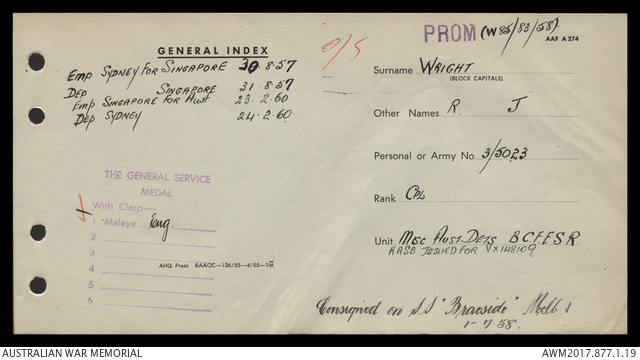 GENERAL INDEX
Emp SYDNEY FOR SINGAPORE 30.8.57
Dep SINGAPORE 31.8.57
Emp SINGAPORE FOR AUST 23.2.60
Dep SYDNEY 24.2.60
THE GENERAL SERVICE
MEDAL
With Clasp—
1 Malaya Eng
2
3
4
5
6
AHQ Press RAAOC—136/55—4/55—1M
O/S
PROM (W85/83/58).
AAF A 274
Surname WRIGHT
(BLOCK CAPITALS)
Other Names R. J
Personal or Army No. 3/5023
Rank CPL
Unit MISC AUST DETS B.C.F.E.S.R
RASB ISSUED FOR VX148109
Consigned on S.S "Braeside" Melb
1-7-58.
AUSTRALIAN WAR MEMORIAL
AWM2017.877.1.19